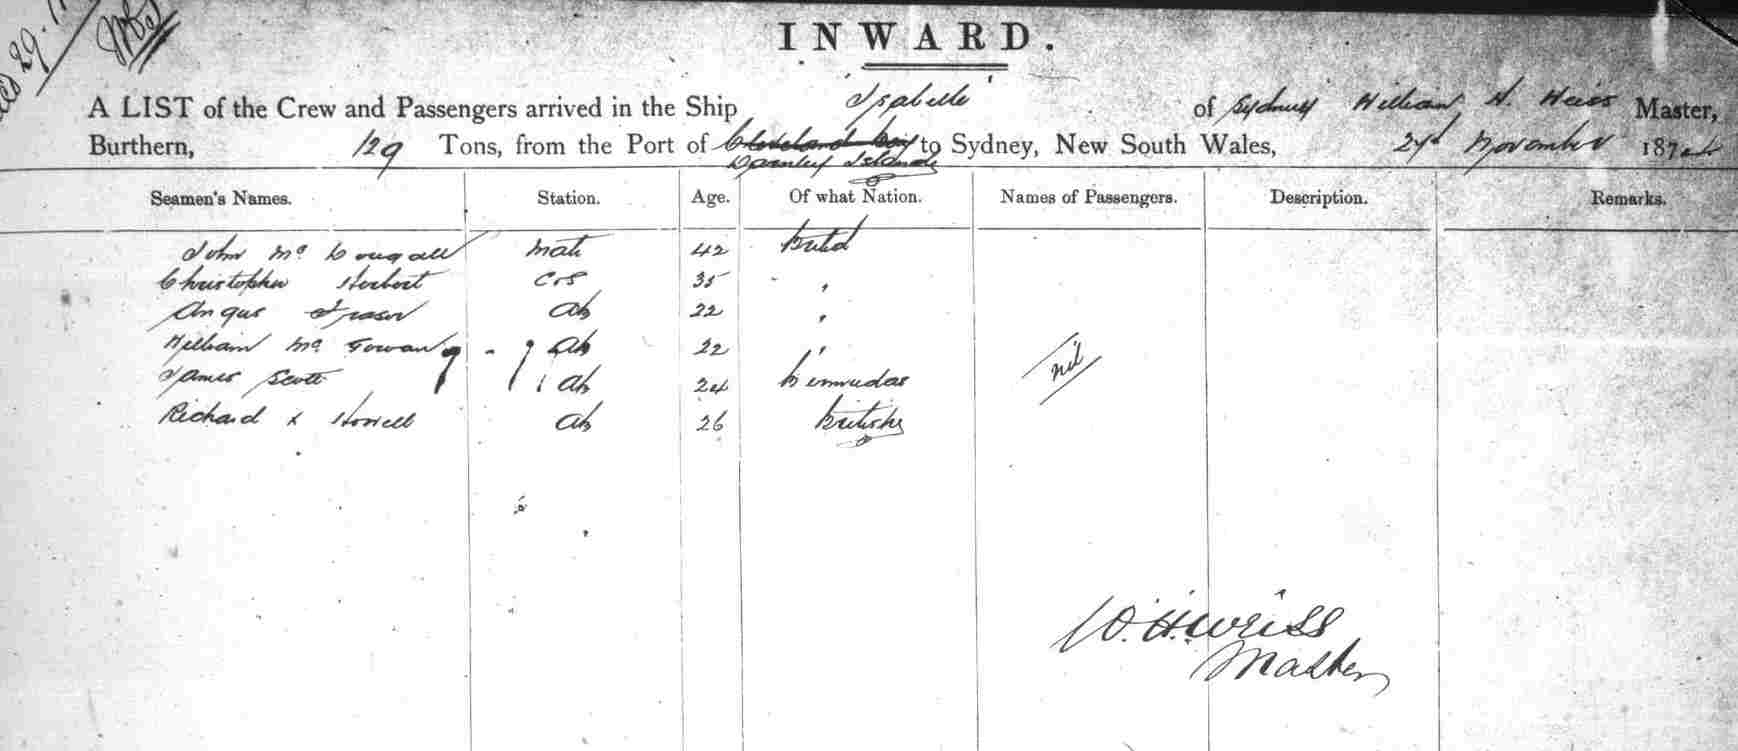 INWARD.
A LIST of the Crew and Passengers arrived in the Ship "Isabelle" of Sydney William H. Weiss Master,
Burthern, 129 Tons, from the Port of Cleveland Bay to Sydney, New South Wales, November 187
Darnley Islands
Seamen's Names. Station. Age. Of what Nation. Names of Passengers. Description. Remarks.
John Mc Dougall Mate 42
Christopher Herbert 35 "
Angus Fraser Ab 22 "
William Mc Gowan - Ab 22 "
James Scott Ab 24 Bermudas nil
Richard Howell Ab 26 British
W. H. Weiss
Master